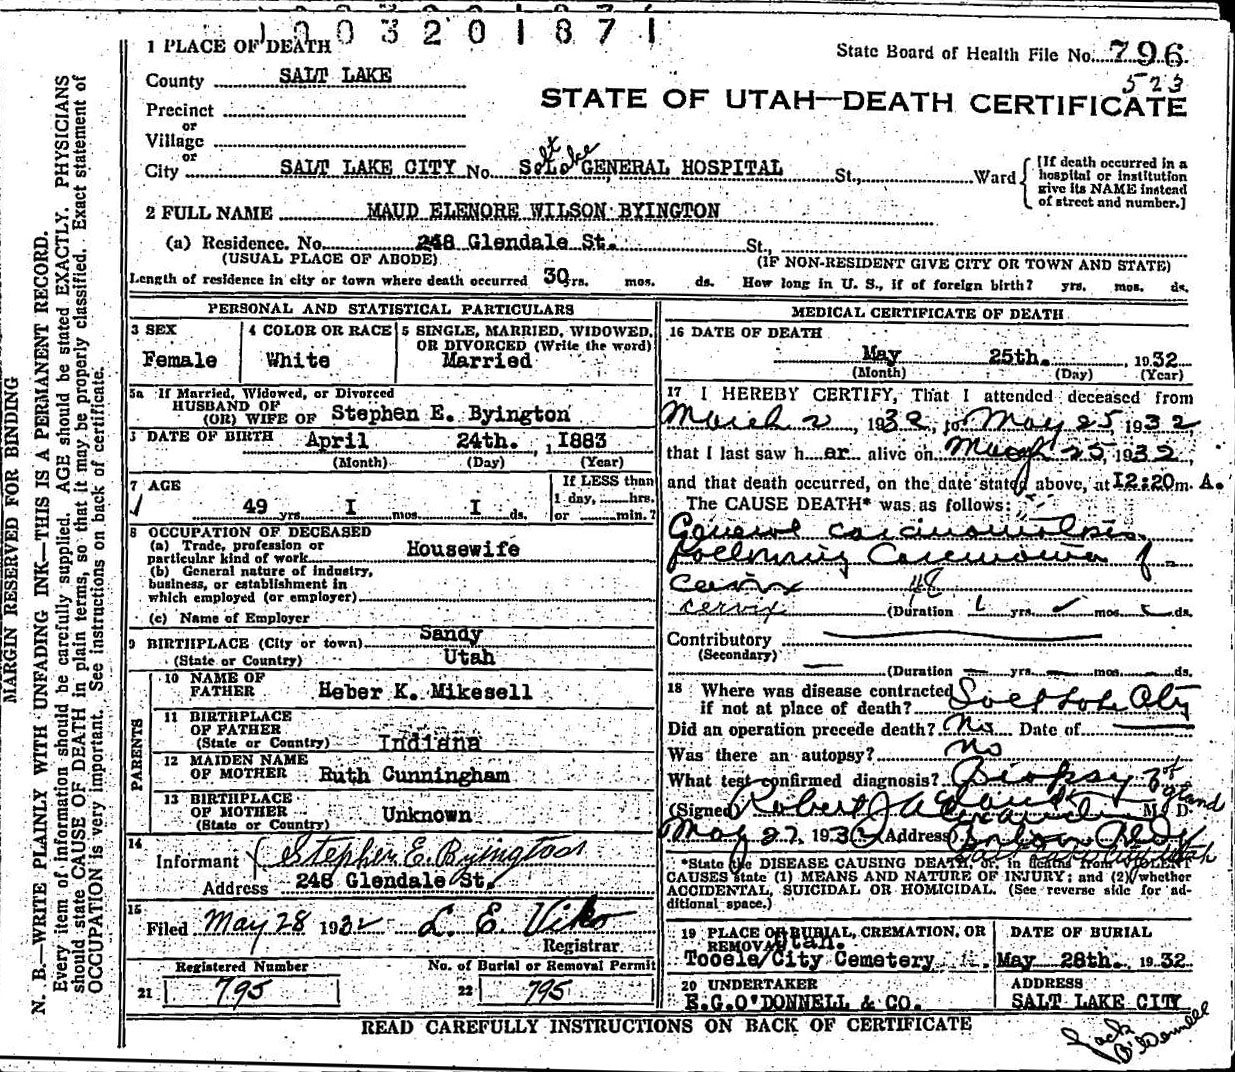 1003201871
1 PLACE OF DEATH
State Board of Health File No. 796
523
County SALT LAKE
STATE OF UTAH—DEATH CERTIFICATE
Precinct
or
Village
or
City SALT LAKE CITY No. Salt Lake GENERAL HOSPITAL St., Ward
[If death occurred in a
hospital or institution
give its NAME instead
of street and number.]
2 FULL NAME MAUD ELENORE WILSON BYINGTON
(a) Residence. No. 248 Glendale St. St.,
(USUAL PLACE OF ABODE) (IF NON-RESIDENT GIVE CITY OR TOWN AND STATE)
Length of residence in city or town where death occurred 30 yrs. mos. ds. How long in U. S., if of foreign birth? yrs. mos. ds.
PERSONAL AND STATISTICAL PARTICULARS
3 SEX
Female
4 COLOR OR RACE
White
5 SINGLE, MARRIED, WIDOWED,
OR DIVORCED (Write the word)
Married
5a If Married, Widowed, or Divorced
HUSBAND OF
(OR) WIFE OF Stephen E. Byington
DATE OF BIRTH April 24th. , 1883
(Month) (Day) (Year)
7 AGE
49 yrs. I mos. I ds.
If LESS than
1 day, hrs.
or min.?
8 OCCUPATION OF DECEASED
(a) Trade, profession or
particular kind of work Housewife
(b) General nature of industry,
business, or establishment in
which employed (or employer)
(c) Name of Employer
9 BIRTHPLACE (City or town) Sandy
(State or Country) Utah
PARENTS
10 NAME OF
FATHER Heber K. Mikesell
11 BIRTHPLACE
OF FATHER
(State or Country) Indiana
12 MAIDEN NAME
OF MOTHER Ruth Cunningham
13 BIRTHPLACE
OF MOTHER
(State or Country) Unknown
14
Informant Stephen E. Byington
Address 248 Glendale St.
15
Filed May 28 1932 L. E. Viko
Registrar
Registered Number
21 795
No. of Burial or Removal Permit
22 795
MEDICAL CERTIFICATE OF DEATH
16 DATE OF DEATH
May 25th. , 1932
(Month) (Day) (Year)
17 I HEREBY CERTIFY, That I attended deceased from
March 2, 1932, to May 25, 1932,
that I last saw h er alive on May 25, 1932,
and that death occurred, on the date stated above, at 12:20 m. A.
The CAUSE DEATH* was as follows:
General carcinomatosis
following Carcinoma of
cervix 48
cervix (Duration 1 yrs. mos. ds.
Contributory
(Secondary)
(Duration yrs. mos. ds.
18 Where was disease contracted
if not at place of death? Salt Lake City
Did an operation precede death? No Date of
Was there an autopsy? no
What test confirmed diagnosis? Biopsy of gland
(Signed) Robert J. M. D.
May 27, 1932 (Address)
*State the DISEASE CAUSING DEATH, or, in deaths from VIOLENT
CAUSES state (1) MEANS AND NATURE OF INJURY; and (2) whether
ACCIDENTAL, SUICIDAL OR HOMICIDAL. (See reverse side for ad-
ditional space.)
19 PLACE OR BURIAL, CREMATION, OR
REMOVAL Utah.
Tooele City Cemetery
DATE OF BURIAL
May 28th. 1932
20 UNDERTAKER
E.G.O'DONNELL & CO.
ADDRESS
SALT LAKE CITY
READ CAREFULLY INSTRUCTIONS ON BACK OF CERTIFICATE
Jack O'Donnell
MARGIN RESERVED FOR BINDING
N. B.—WRITE PLAINLY WITH UNFADING INK—THIS IS A PERMANENT RECORD.
Every item of information should be carefully supplied. AGE should be stated EXACTLY. PHYSICIANS
should state CAUSE OF DEATH in plain terms, so that it may be properly classified. Exact statement of
OCCUPATION is very important. See instructions on back of certificate.